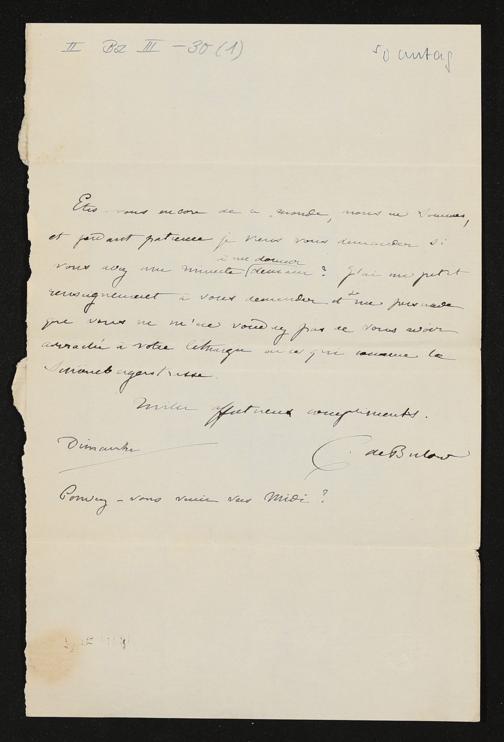 II Bz III - 30 (1)
Sonntag
Etes-vous encore de ce monde, nous ne savons,
et perdant patience je viens vous demander si
vous avez une minute à me donner demain? J'ai un petit
renseignement à vous demander et me persuade
que vous ne m'en voudrez pas de vous avoir
arraché à votre léthargie en ce qui concerne la
Schönebergerstrasse.
Mille affectueux compliments.
Dimanche
C. de Bulow
Pouvez-vous venir vers Midi?